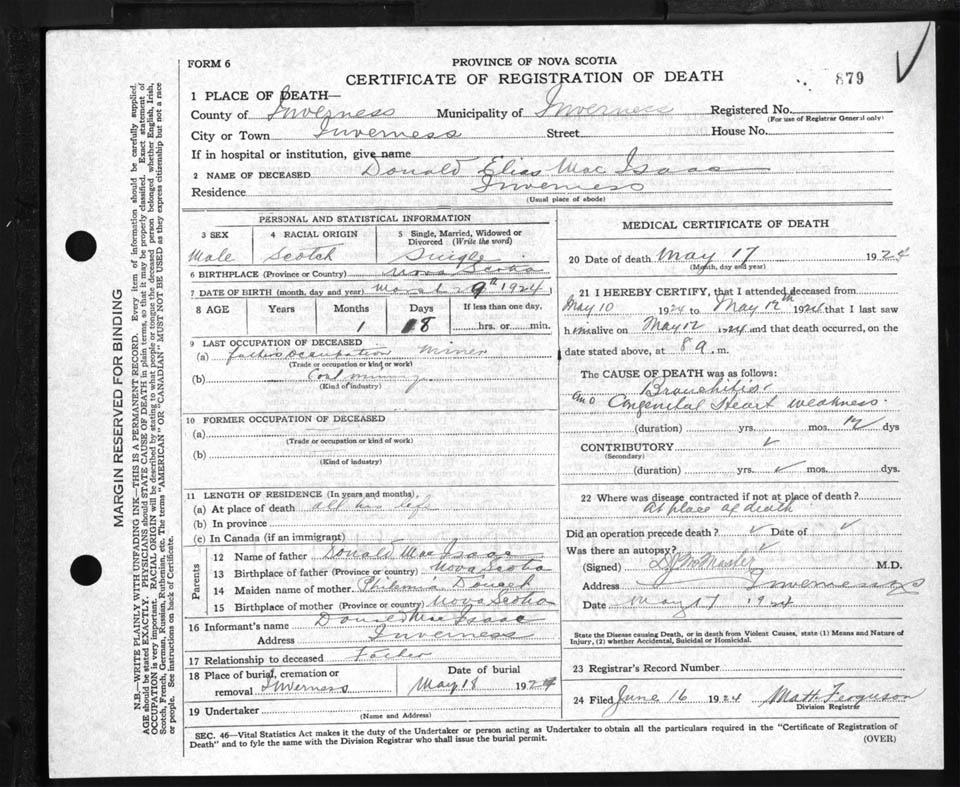 FORM 6
PROVINCE OF NOVA SCOTIA
CERTIFICATE OF REGISTRATION OF DEATH
879
1 PLACE OF DEATH—
County of Inverness Municipality of Inverness Registered No.
(For use of Registrar General only)
City or Town Inverness Street House No.
If in hospital or institution, give name
2 NAME OF DECEASED Donald Elias Mac Isaac
Residence Inverness
(Usual place of abode)
PERSONAL AND STATISTICAL INFORMATION
3 SEX 4 RACIAL ORIGIN 5 Single, Married, Widowed or Divorced (Write the word)
Male Scotch Single
6 BIRTHPLACE (Province or Country) Nova Scotia
7 DATE OF BIRTH (month, day and year) March 29th 1924
8 AGE Years Months Days If less than one day,
1 18 hrs. or min.
9 LAST OCCUPATION OF DECEASED
(a) father's occupation miner
(Trade or occupation or kind of work)
(b) Coal mining
(Kind of industry)
10 FORMER OCCUPATION OF DECEASED
(a)
(Trade or occupation or kind of work)
(b)
(Kind of industry)
11 LENGTH OF RESIDENCE (In years and months),
(a) At place of death all his life
(b) In province
(c) In Canada (if an immigrant)
Parents
12 Name of father Donald Mac Isaac
13 Birthplace of father (Province or country) Nova Scotia
14 Maiden name of mother
15 Birthplace of mother (Province or country) Nova Scotia
16 Informant's name Donald Mac Isaac
Address Inverness
17 Relationship to deceased Father
18 Place of burial, cremation or Date of burial
removal Inverness May 18 1924
19 Undertaker
(Name and Address)
MEDICAL CERTIFICATE OF DEATH
20 Date of death May 17 1924
(Month, day and year)
21 I HEREBY CERTIFY, that I attended deceased from
May 10 1924 to May 12th 1924 that I last saw
him alive on May 12 1924 and that death occurred, on the
date stated above, at 8 a. m.
The CAUSE OF DEATH was as follows:
Bronchitis
and Congenital Heart weakness.
(duration) yrs. mos. dys
CONTRIBUTORY
(Secondary)
(duration) yrs. mos. dys.
22 Where was disease contracted if not at place of death?
At place of death
Did an operation precede death? Date of
Was there an autopsy?
(Signed) M.D.
Address Inverness
Date May 17 1924
State the Disease causing Death, or in death from Violent Causes, state (1) Means and Nature of
Injury, (2) whether Accidental, Suicidal or Homicidal.
23 Registrar's Record Number
24 Filed June 16 1924 Matt Ferguson
Division Registrar
SEC. 46—Vital Statistics Act makes it the duty of the Undertaker or person acting as Undertaker to obtain all the particulars required in the "Certificate of Registration of
Death" and to fyle the same with the Division Registrar who shall issue the burial permit.
(OVER)
MARGIN RESERVED FOR BINDING
N.B.—WRITE PLAINLY WITH UNFADING INK—THIS IS A PERMANENT RECORD. Every item of information should be carefully supplied.
AGE should be stated EXACTLY. PHYSICIANS should STATE CAUSE OF DEATH in plain terms, so that it may be properly classified. Exact statement of
OCCUPATION is very important. RACIAL ORIGIN will be described by stating to what people or tongue the deceased person belonged whether English, Irish,
Scotch, French, German, Russian, Ruthenian, etc. The terms "AMERICAN" OR "CANADIAN" MUST NOT BE USED as they express citizenship but not a race
or people. See instructions on back of Certificate.